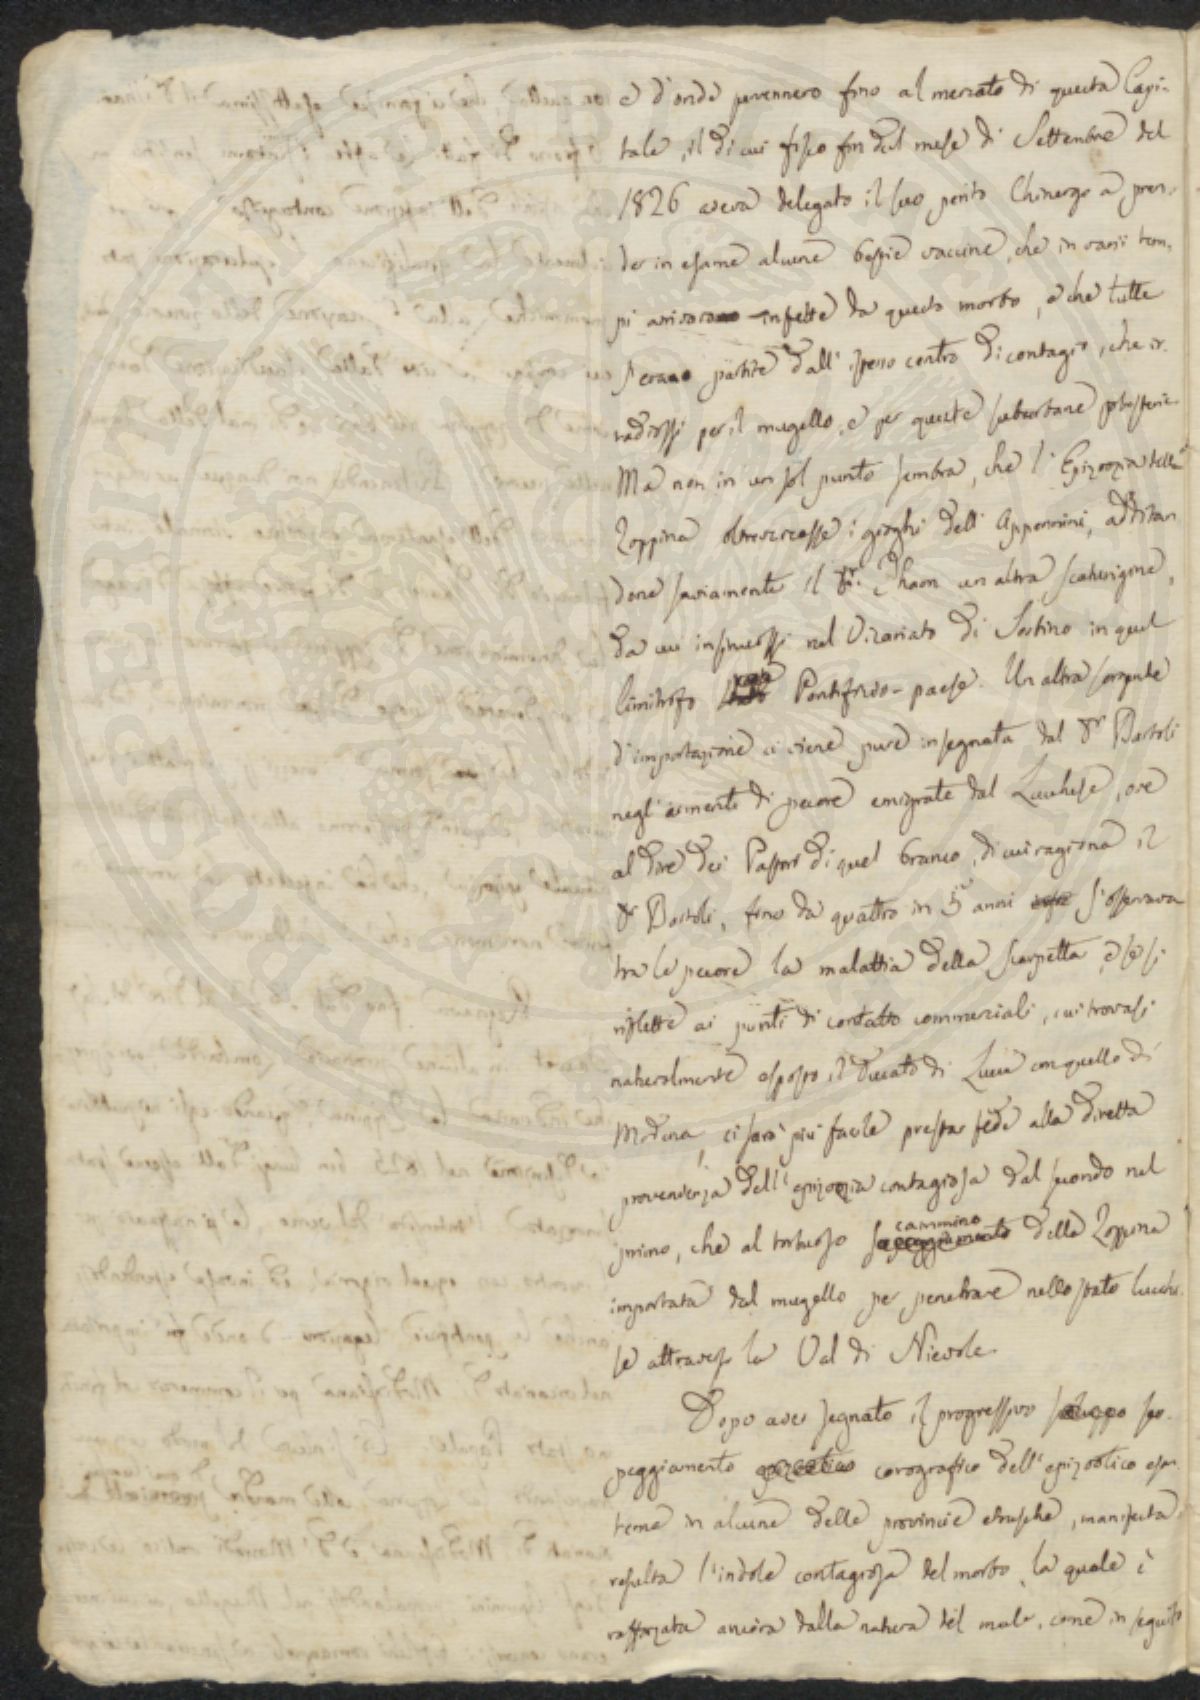 e d'onde pervennero fino al mercato di questa Capi-
tale, il di cui fisco fin dal mese di Settembre del
1826 aveva delegato il suo perito Chirurgo a pren-
der in esame alcune bestie vaccine, che in varii tem-
pi arrivarono infette da questo morbo, e che tutte
s'erano partite dall'istesso centro di contagio, che ir-
radiossi per il mugello, e per queste suburbane
Ma non in un sol punto sembra, che l'Epizoozia della
Zoppina oltrevarcasse i gioghi dell'Appennini, additan
done saviamente il Dr. un altra scaturigine,
da cui insinuossi nel Vicariato di Sestino in quel
limitrofo Pontificio-paese. Un altra sorgente
d'importazione ci viene pure insegnata dal Dr Bartoli
negl'armenti di pecore emigrate dal Lucchese, ove
al dire dei Pastori di quel branco, di cui ragiona il
Dr Bartoli, fino da quattro in 5 anni s'osservava
tra le pecore la malattia della scarpetta, e se si
riflette ai punti di contatto commerciali, cui trovasi
naturalmente esposto il Ducato di Lucca con quello di
Modena, ci sarà più facile prestar fede alla diretta
provenienza dell'epizoozia contagiosa dal secondo nel
primo, che al tortuoso cammino della Zoppina
importata dal mugello per penetrare nello stato lucche
se attraverso la Val di Nievole.
Dopo aver segnato il progressivo sviluppo sco-
peggiamento corografico dell'epizootico esan
tema in alcune delle provincie etrusche, manifesta
resulta l'indole contagiosa del morbo, la quale è
rafforzata ancora dalla natura del male, come in seguito